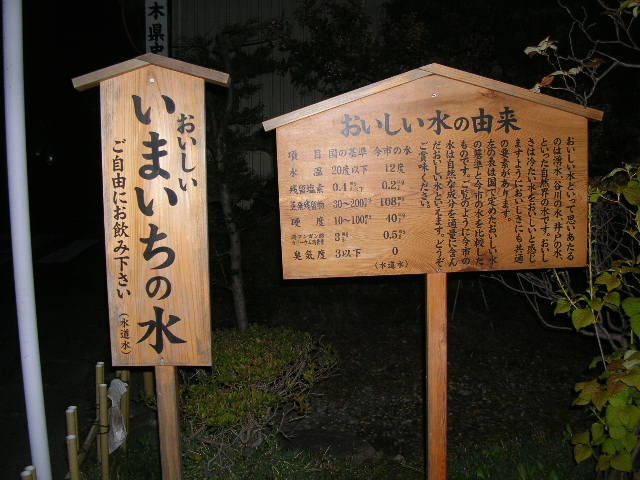 木県史
おいしい
いまいちの水
ご自由にお飲み下さい
(水道水)
おいしい水の由来
おいしい水といって思いあたる
のは湧水、谷川の水、井戸の水、
といった自然界の水です。おいし
さは冷たい水をおいしいと感じ
ますようにおいしさにも共通
の要素があります。
左の表は国で定めたおいしい水
の基準と今市の水を比較した
ものです。ご覧のように今市の
水は自然な成分を適量に含ん
だおいしい水といえます。どうぞ
ご賞味ください。
項目 国の基準 今市の水
水温 20度以下 12度
残留塩素 0.4 0.2
蒸発残留物 30~200 108
硬度 10~100 40
3 0.5
臭気度 3以下 0
(水道水)